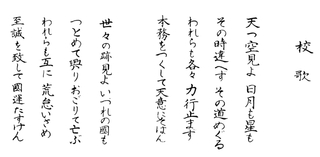 校歌
天つ空見よ 日月も星も
その時違へす その道めくる
われらも各々 力行止ます
本務をつくして天意にそはん
世々の跡見よ いつれの國も
つとめて興り おごりて亡ふ
われらも互に 荒怠いさめ
至誠を致して 國運たすけん